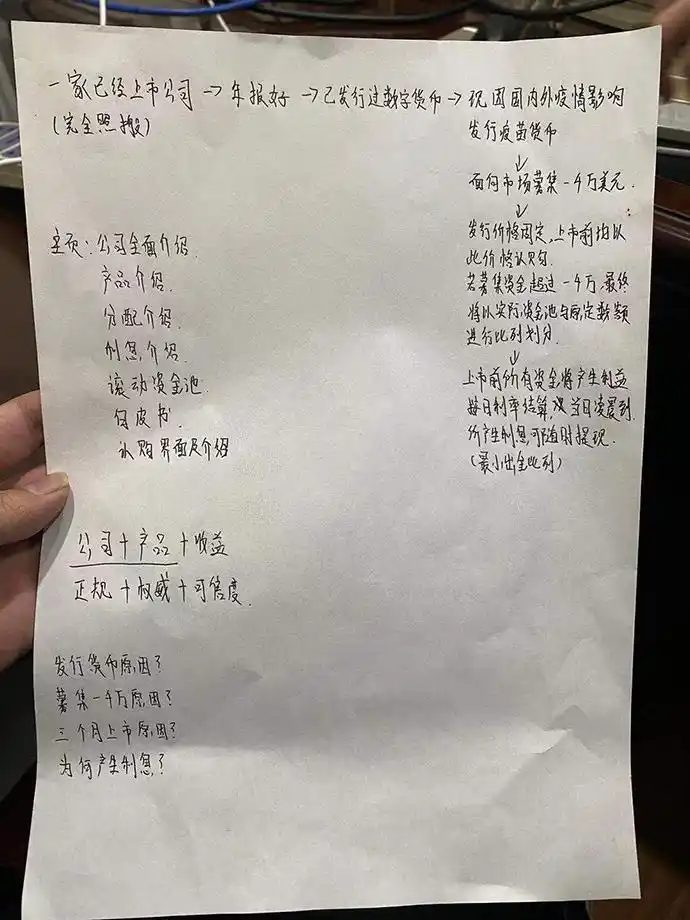 一家已经上市公司→年报好→已发行过数字货币→现因国内外疫情影响
(完全照搬)
发行疫苗货币
↓
面向市场募集一千万美元.
↓
发行价格固定,上市前均以
此价格认购.
若募集资金超过一千万.最终
将以实际资金池与原定数额
进行比列划分.
↓
上市前所有资金将产生利益
每日利率结算,次当日凌晨到
所产生利息,可随时提现.
(最小出金比列)
主页:公司全面介绍.
产品介绍.
分配介绍.
利息介绍.
滚动资金池.
白皮书.
认购界面及介绍
公司+产品+收益
正规+权威+可信度.
发行货币原因?
募集一千万原因?
三个月上市原因?
为何产生利息?